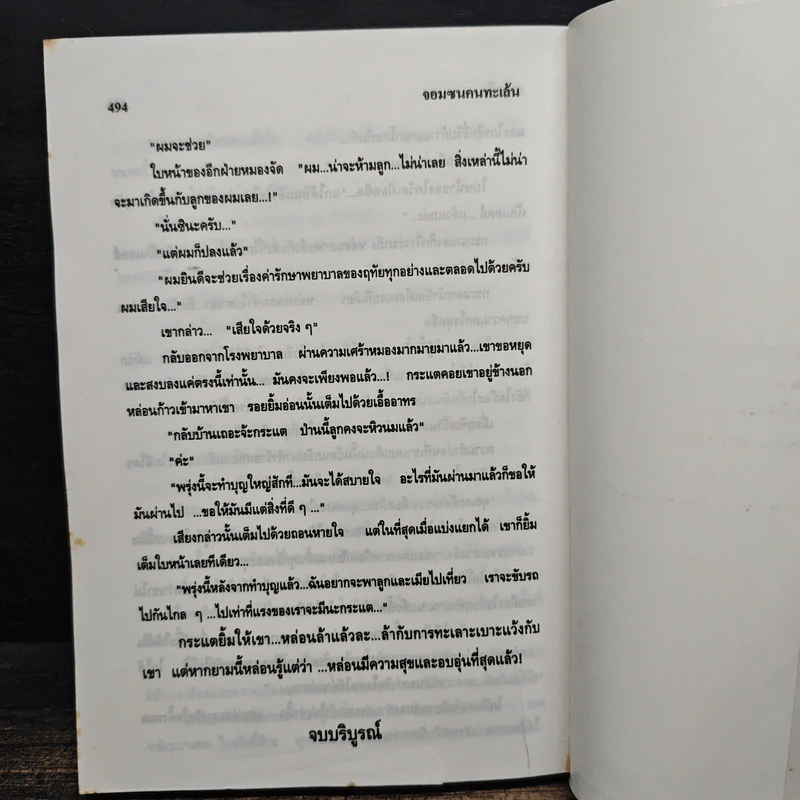 494
จอมซนคนทะเล้น
"ผมจะช่วย"
ใบหน้าของอีกฝ่ายหมองจัด "ผม...น่าจะห้ามลูก...ไม่น่าเลย สิ่งเหล่านี้ไม่น่า
จะมาเกิดขึ้นกับลูกของผมเลย...!"
"นั่นซินะครับ..."
"แต่ผมก็ปลงแล้ว"
"ผมยินดีจะช่วยเรื่องค่ารักษาพยาบาลของฤทัยทุกอย่างและตลอดไปด้วยครับ
ผมเสียใจ..."
เขากล่าว... "เสียใจด้วยจริง ๆ"
กลับออกจากโรงพยาบาล ผ่านความเศร้าหมองมากมายมาแล้ว...เขาขอหยุด
และสงบลงแค่ตรงนี้เท่านั้น... มันคงจะเพียงพอแล้ว...! กระแตคอยเขาอยู่ข้างนอก
หล่อนก้าวเข้ามาหาเขา รอยยิ้มอ่อนนั้นเต็มไปด้วยเอื้ออาทร
"กลับบ้านเถอะจ้ะกระแต ป่านนี้ลูกคงจะหิวนมแล้ว"
"ค่ะ"
"พรุ่งนี้จะทำบุญใหญ่สักที...มันจะได้สบายใจ อะไรที่มันผ่านมาแล้วก็ขอให้
มันผ่านไป ...ขอให้มันมีแต่สิ่งที่ดี ๆ ..."
เสียงกล่าวนั้นเต็มไปด้วยถอนหายใจ แต่ในที่สุดเมื่อแบ่งแยกได้ เขาก็ยิ้ม
เต็มใบหน้าเลยทีเดียว...
"พรุ่งนี้หลังจากทำบุญแล้ว...ฉันอยากจะพาลูกและเมียไปเที่ยว เราจะขับรถ
ไปกันไกล ๆ ...ไปเท่าที่แรงของเราจะมีนะกระแต..."
กระแตยิ้มให้เขา...หล่อนล้าแล้วละ...ล้ากับการทะเลาะเบาะแว้งกับ
เขา แต่หากยามนี้หล่อนรู้แต่ว่า ...หล่อนมีความสุขและอบอุ่นที่สุดแล้ว!
จบบริบูรณ์